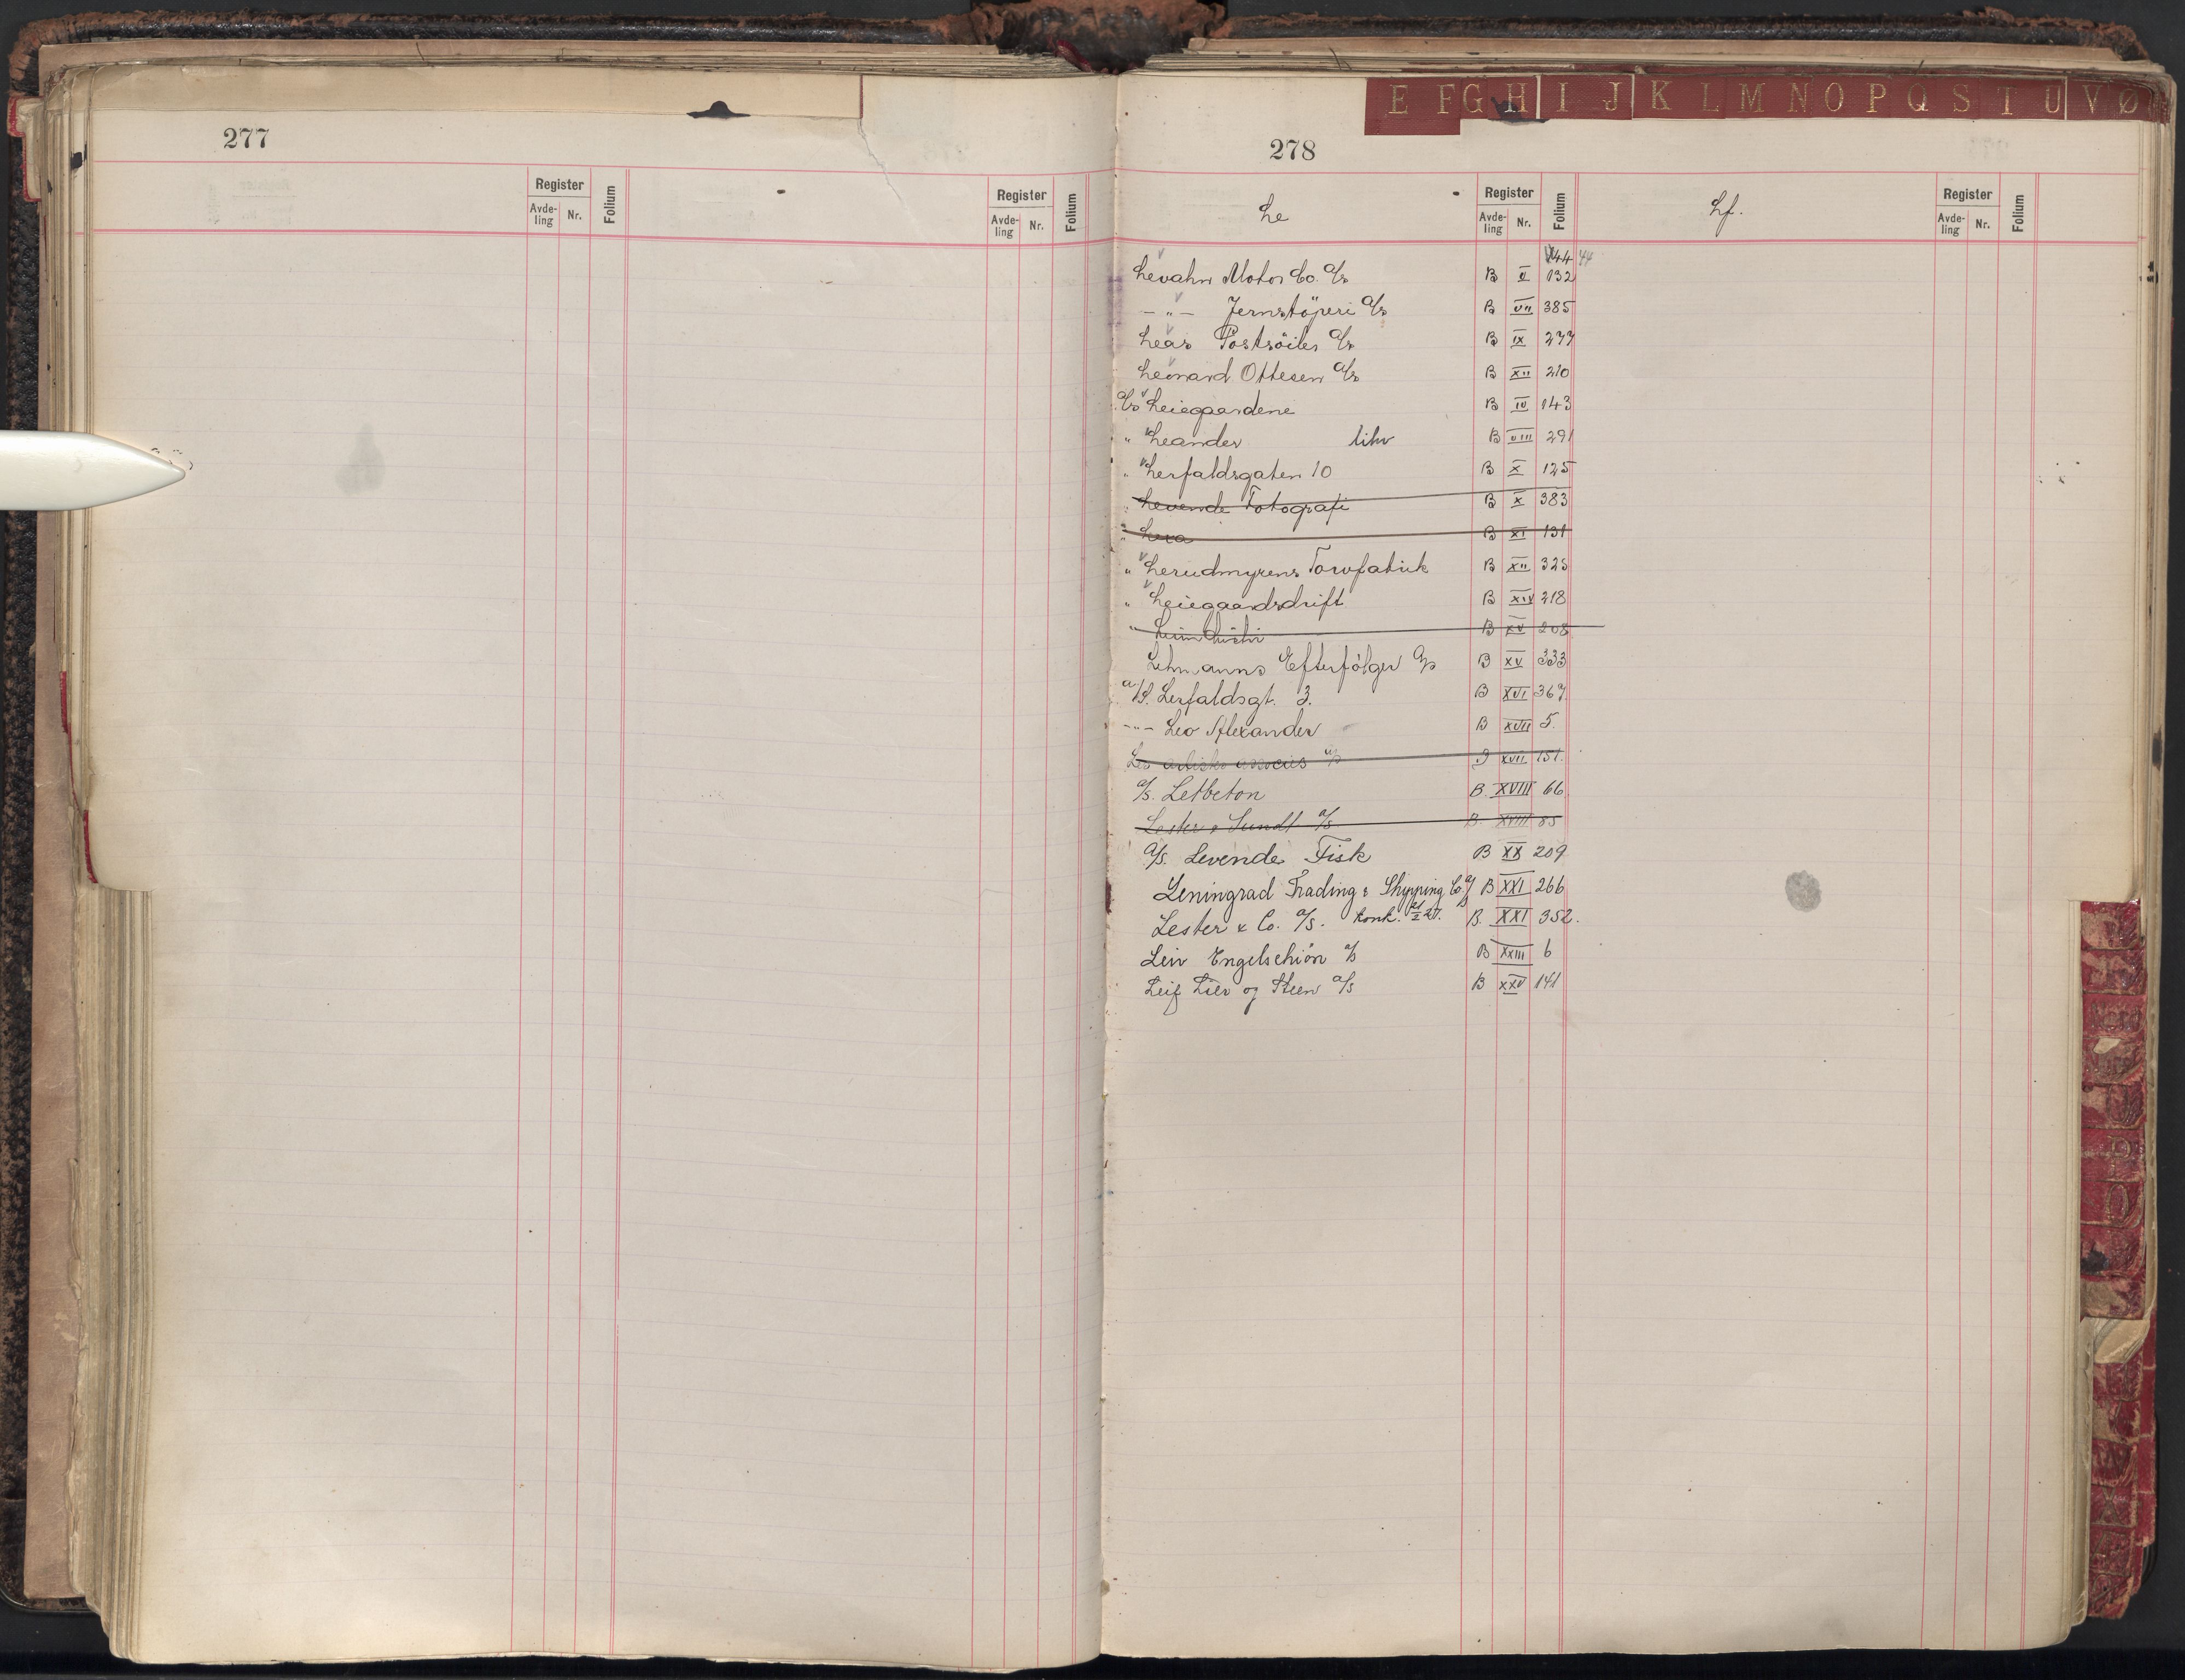 277
Register
Avde-ling Nr. Folium
Register
Avde-ling Nr. Folium
E F G H I J K L M N O P Q S T U V Ø
278
Le
Register
Avde-ling Nr. Folium
Lf.
Register
Avde-ling Nr. Folium
144 44
Levahn Motor Co. A/s B V 132
— " — Jernstöperi A/s B VII 385
Leas Postsöiler A/s B IX 277
Leonard Ottesen A/s B XII 210
A/s Leiegaardene B IV 143
" Leander likv B VIII 291
" Lerfaldsgaten 10 B X 125
" Levende Fotografi B X 383
" Lexa B XI 131
" Lerudmyrens Torvfabrik B XII 325
" Leiegaardsdrift B XIV 218
" B XV 208
Lehmanns Efterfölger A/s B XV 333
A/S. Lerfaldsgt. 3. B XVI 367
— " — Leo Alexander B XVII 5.
Les artists associés A/s B XVII 151.
A/S. Letbeton B. XVIII 66
Lester & Sundt A/s B. XVIII 85
A/S. Levende Fisk B XX 209
Leningrad Trading & Shipping Co. A/s B XXI 266
Lester & Co. A/S. Konk. B. XXI 352.
Leiv Engelschiön A/s B XXIII 6
Leif Lier og Steen A/s B XXV 141